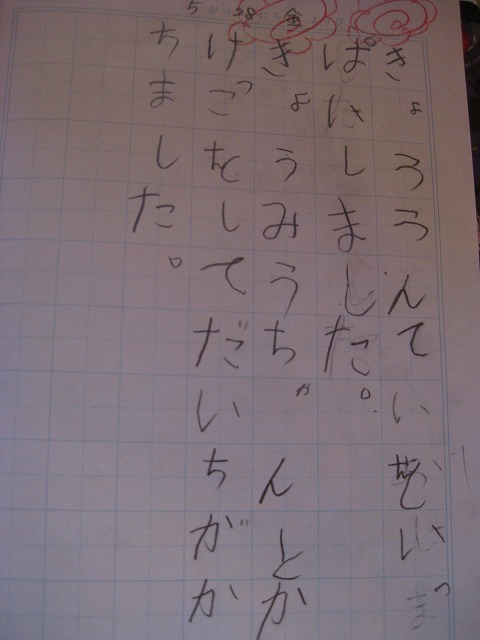 5がつ28にち金よう
きょうろうんていぜいっ
ぱいしました。
きょうみうちゃんとか
けっこをしてだいちがか
ちました。